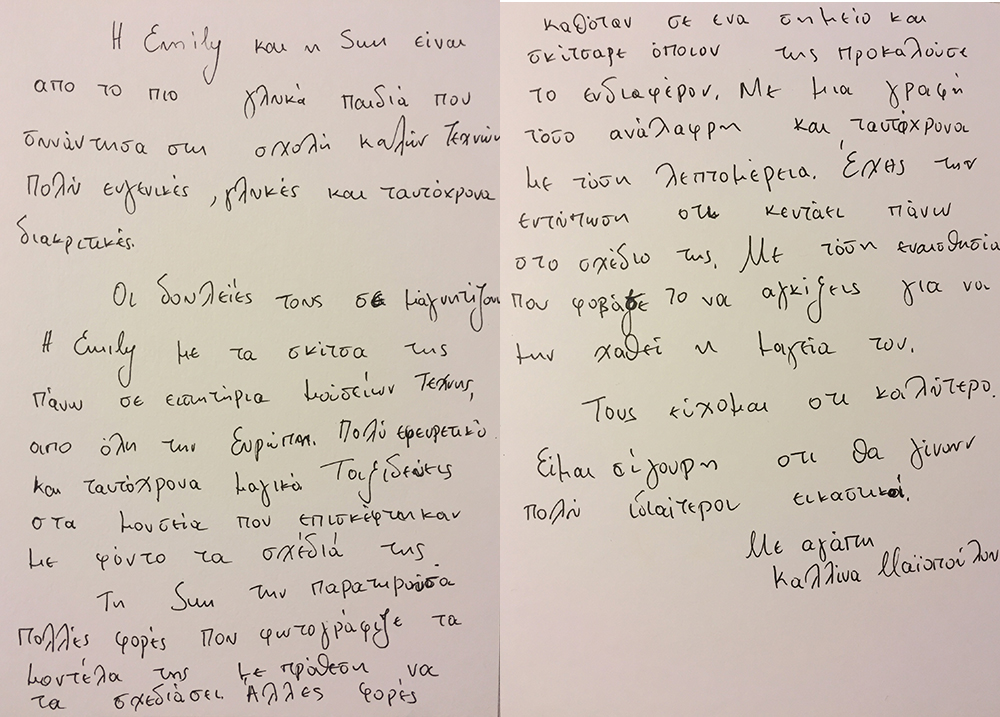 Η Emily και η Sun είναι
απο το πιο γλυκά παιδιά που
συνάντησα στη σχολή καλών Τεχνών
Πολύ ευγενικές, γλυκές και ταυτόχρονα
διακριτικές.
Οι δουλειές τους σε μαγνητίζουν
Η Emily με τα σκίτσα της
πάνω σε εισητήρια μουσείων Τέχνης,
απο όλη την Ευρώπη. Πολύ εφευρετικό
και ταυτόχρονα μαγικά Ταξιδεύεις
στα μουσεία που επισκέφτηκαν
με φόντο τα σχέδιά της
Τη Sun την παρατηρούσα
πολλές φορές που φωτογράφιζε τα
μοντέλα της με πρόθεση να
τα σχεδιάσει. Άλλες φορές
καθόταν σε ενα σημείο και
σκίτσαρε όποιον της προκαλούσε
το ενδιαφέρον. Με μια γραφή
τόσο ανάλαφρη και ταυτόχρονα
με τόση λεπτομέρεια. Έχεις την
εντύπωση οτι κεντάει πάνω
στο σχέδιο της. Με τόση εναισθησία
που φοβάσε το να αγκίξεις για να
μην χαθεί η μαγεία του.
Τους εύχομαι οτι καλύτερο.
Είμαι σίγουρη οτι θα γίνουν
πολύ ιδιαίτεροι εικαστικοί.
Με αγάπη
Καλλίνα Μαϊοπούλου